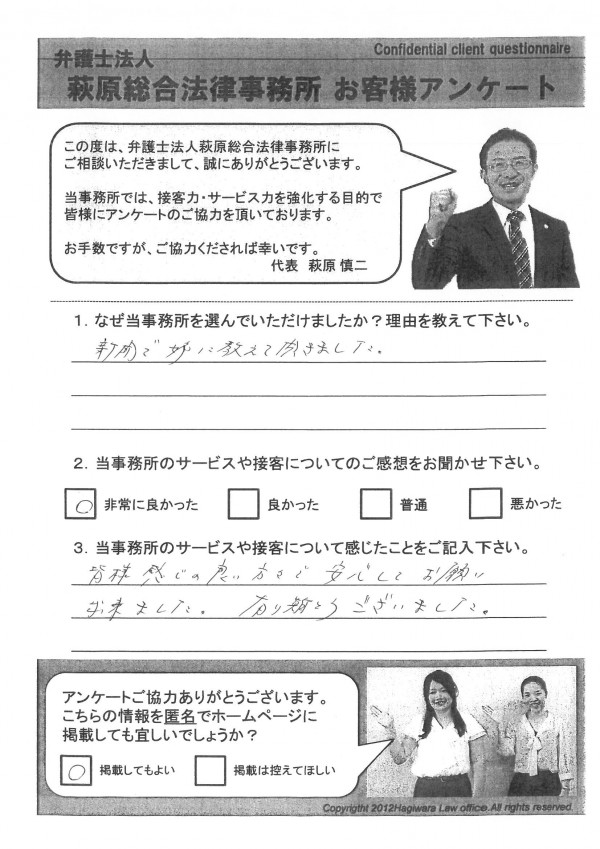 Confidential client questionnaire
弁護士法人
萩原総合法律事務所 お客様アンケート
この度は、弁護士法人萩原総合法律事務所に
ご相談いただきまして、誠にありがとうございます。
当事務所では、接客力・サービス力を強化する目的で
皆様にアンケートのご協力を頂いております。
お手数ですが、ご協力くだされば幸いです。
代表 萩原 慎二
1. なぜ当事務所を選んでいただけましたか？理由を教えて下さい。
新聞で 姉に教えて頂きました。
2. 当事務所のサービスや接客についてのご感想をお聞かせ下さい。
○ 非常に良かった 良かった 普通 悪かった
3. 当事務所のサービスや接客について感じたことをご記入下さい。
皆様 感じの良い方々で 安心して お願い
出来ました。 有り難とうございました。
アンケートご協力ありがとうございます。
こちらの情報を匿名でホームページに
掲載しても宜しいでしょうか？
○ 掲載してもよい 掲載は控えてほしい
Copyright 2012Hagiwara Law office.All rights reserved.